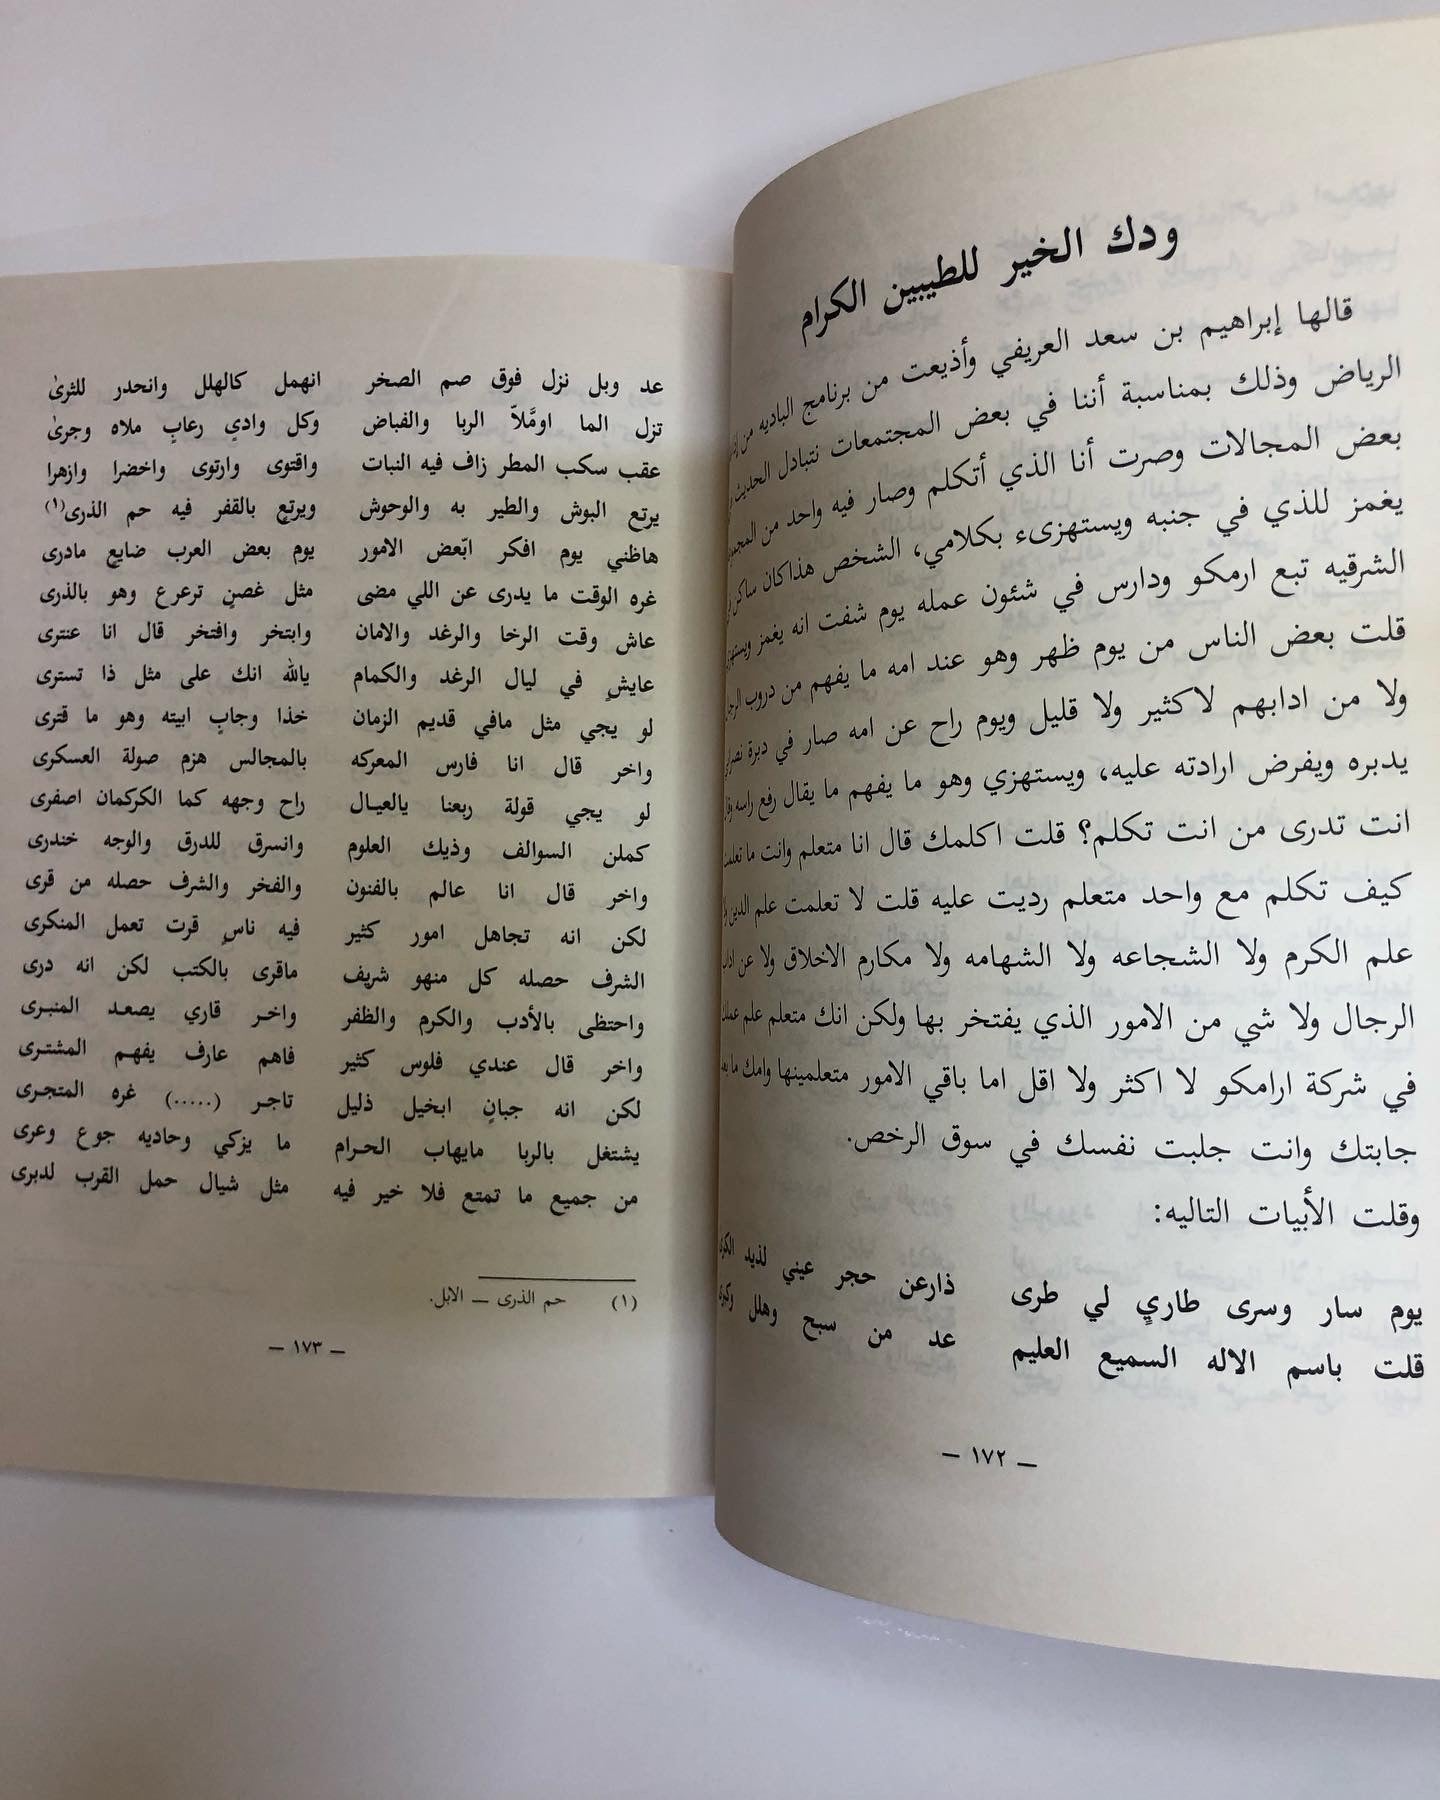 ودك الخير للطيبين الكرام
قالها إبراهيم بن سعد العريفي وأذيعت من برنامج الباديه من
الرياض وذلك بمناسبة أننا في بعض المجتمعات نتبادل الحديث
بعض المجالات وصرت أنا الذي أتكلم وصار فيه واحد من
يغمز للذي في جنبه ويستهزىء بكلامي، الشخص هذاكان ساكن
الشرقيه تبع ارمكو ودارس في شئون عمله يوم شفت انه يغمز
قلت بعض الناس من يوم ظهر وهو عند امه ما يفهم من دروب
ولا من ادابهم لاكثير ولا قليل ويوم راح عن امه صار في ديرة
يدبره ويفرض ارادته عليه، ويستهزي وهو ما يفهم ما يقال رفع راسه
انت تدرى من انت تكلم؟ قلت اكلمك قال انا متعلم وانت ما
كيف تكلم مع واحد متعلم رديت عليه قلت لا تعلمت علم الدين
علم الكرم ولا الشجاعه ولا الشهامه ولا مكارم الاخلاق ولا عن
الرجال ولا شي من الامور الذي يفتخر بها ولكن انك متعلم علم
في شركة ارامكو لا اكثر ولا اقل اما باقي الامور متعلمينها وامك ما
جابتك وانت جلبت نفسك في سوق الرخص.
وقلت الأبيات التاليه:
يوم سار وسرى طاريٍ لي طرى ذارعن حجر عيني لذيد
قلت باسم الاله السميع العليم عد من سبح وهلل
— ١٧٢ —
عد وبل نزل فوق صم الصخر انهمل كالهلل وانحدر للثرىٰ
تزل الما اومَّلاّ الربا والفياض وكل واديٍ رعابٍ ملاه وجرىٰ
عقب سكب المطر زاف فيه النبات واقتوى وارتوى واخضرا وازهرا
يرتع البوش والطير به والوحوش ويرتعٍ بالقفر فيه حم الذرى(١)
هاظني يوم افكر ابّعض الامور يوم بعض العرب ضايعٍ مادرى
غره الوقت ما يدرى عن اللي مضى مثل غصنٍ ترعرع وهو بالذرى
عاش وقت الرخا والرغد والامان وابتخر وافتخر قال انا عنترى
عايشٍ في ليال الرغد والكمام يالله انك على مثل ذا تسترى
لو يجي مثل مافي قديم الزمان خذا وجابٍ ابيته وهو ما قترى
واخر قال انا فارس المعركه بالمجالس هزم صولة العسكرى
لو يجي قولة ربعنا يالعيال راح وجهه كما الكركمان اصفرى
كملن السوالف وذيك العلوم وانسرق للدرق والوجه خندرى
واخر قال انا عالم بالفنون والفخر والشرف حصله من قرى
لكن انه تجاهل امور كثير فيه ناسٍ قرت تعمل المنكرى
الشرف حصله كل منهو شريف ماقرى بالكتب لكن انه درى
واحتظى بالأدب والكرم والظفر واخر قاري يصعد المنبرى
واخر قال عندي فلوس كثير فاهم عارف يفهم المشترى
لكن انه جبانٍ ابخيل ذليل تاجر (.....) غره المتجرى
يشتغل بالربا مايهاب الحرام ما يزكي وحاديه جوع وعرى
من جميع ما تمتع فلا خير فيه مثل شيال حمل القرب لدبرى
(١) حم الذرى — الابل.
— ١٧٣ —